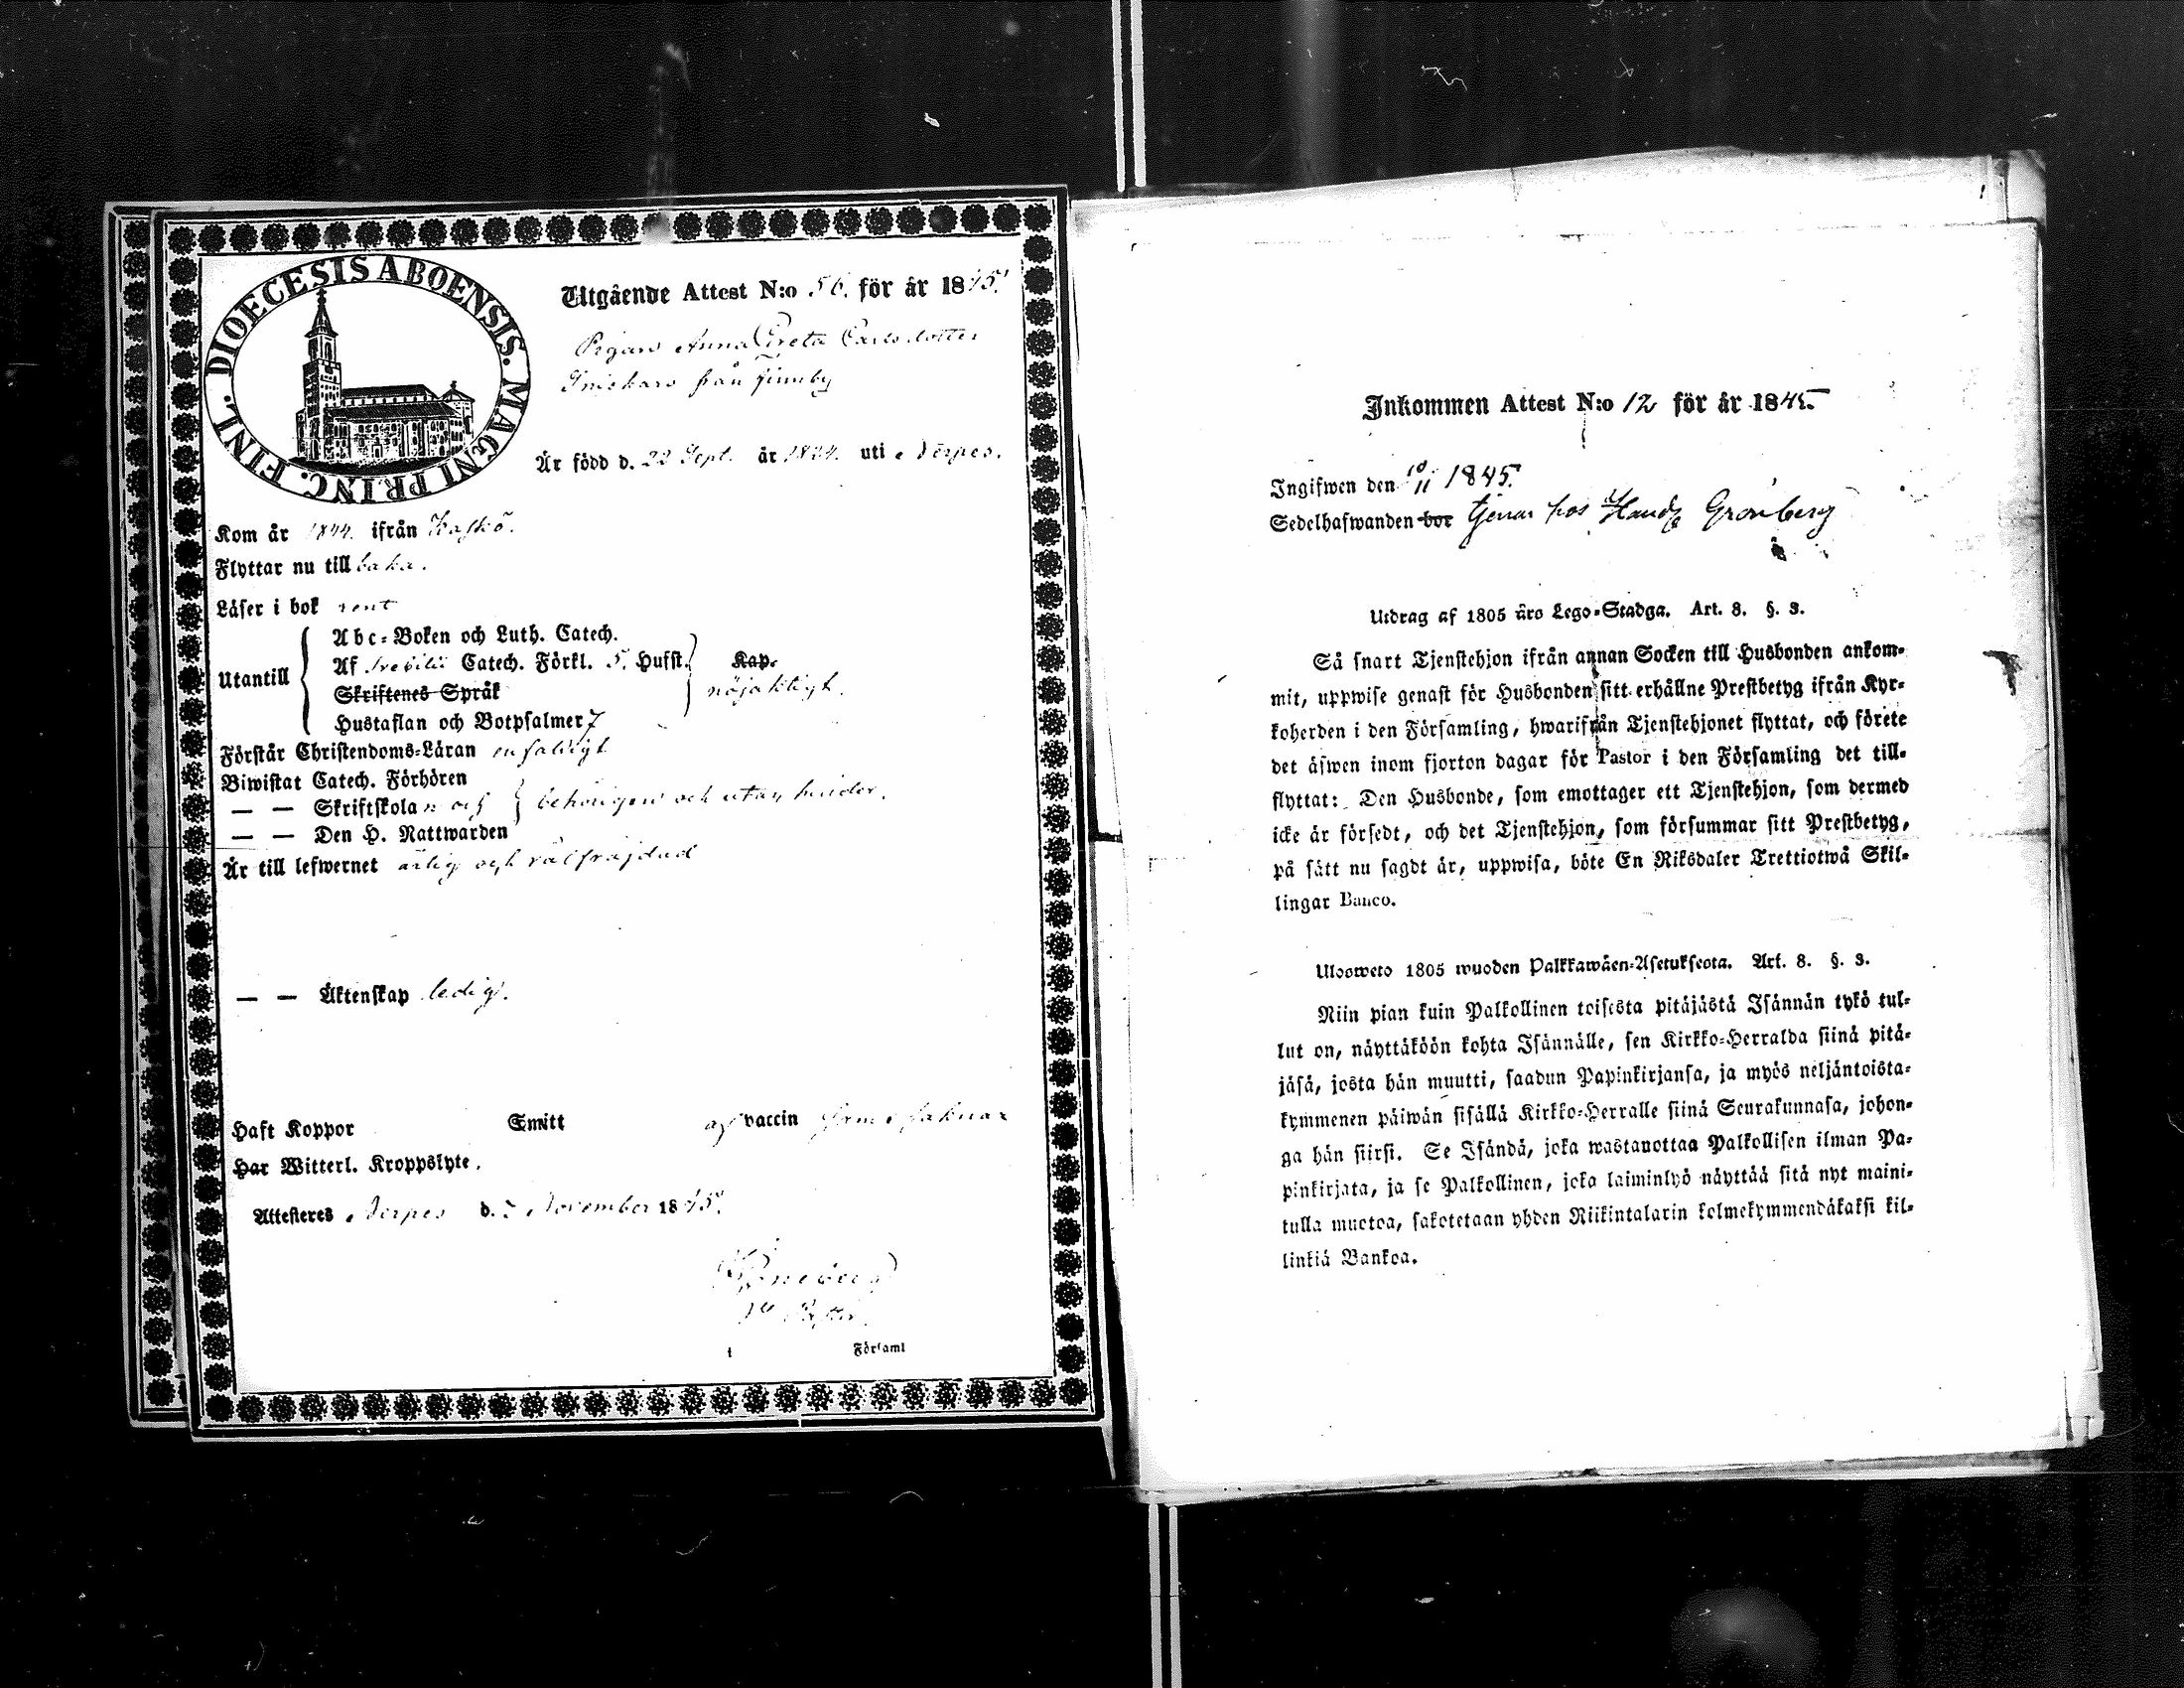 DIOECESIS ABOENSIS. MAGNI PRINC. FINL.
Utgående Attest N:o 56. för år 1845.
Pigan Anna Greta Carlsdotter
från Finnby
Är född d. 22 Sept. år 1824. uti Nerpes.
Kom år 1844. ifrån Kaskö.
Flyttar nu till baka.
Läser i bok rent
Utantill
Abc-Boken och Luth. Catech.
Af Svebilii Catech. Förkl. 5. Hufst. Kap.
Skriftenes Språk nöjaktigt.
Hustaflan och Botpsalmer 7
Förstår Christendoms-Läran enfaldigt
Biwistat Catech. Förhören
— — Skriftskolan och behörigen och utan hinder.
— — Den H. Nattwarden
Är till lefwernet ärlig och välfräjdad
— — Äktenskap ledig.
Haft Koppor Smitt af vaccin
Har Witterl. Kroppslyte.
Attesteres Nerpes d. November 1845.
Förſaml
Inkommen Attest N:o 12 för år 1845.
Ingifwen den 10/11 1845.
Sedelhafwanden bor tjenar hos Handl Grönberg
Utdrag af 1805 års Lego-Stadga. Art. 8. §. 3.
Så snart Tjenstehjon ifrån annan Socken till Husbonden ankom-
mit, uppwise genast för Husbonden sitt erhållne Prestbetyg ifrån Kyr-
koherden i den Församling, hwarifrån Tjenstehjonet flyttat, och förete
det äfwen inom fjorton dagar för Pastor i den Församling det till-
flyttat: Den Husbonde, som emottager ett Tjenstehjon, som dermed
icke är försedt, och det Tjenstehjon, som försummar sitt Prestbetyg,
på sätt nu sagdt är, uppwisa, böte En Riksdaler Trettiotwå Skil-
lingar Banco.
Ulosweto 1805 wuoden Palkkawäen-Asetuksesta. Art. 8. §. 3.
Niin pian kuin Palkollinen toisesta pitäjästä Isännän tykö tul-
lut on, näyttäköön kohta Isännälle, sen Kirkko-Herralda siinä pitä-
jäsä, josta hän muutti, saadun Papinkirjansa, ja myös neljäntoista-
kymmenen päiwän sisällä Kirkko-Herralle siinä Seurakunnasa, johon-
ga hän siirsi. Se Isändä, joka wastanottaa Palkollisen ilman Pa-
pinkirjata, ja se Palkollinen, joka laiminlyö näyttää sitä nyt maini-
tulla muotoa, sakotetaan yhden Riikintalarin kolmekymmendäkaksi kil-
linkiä Bankoa.